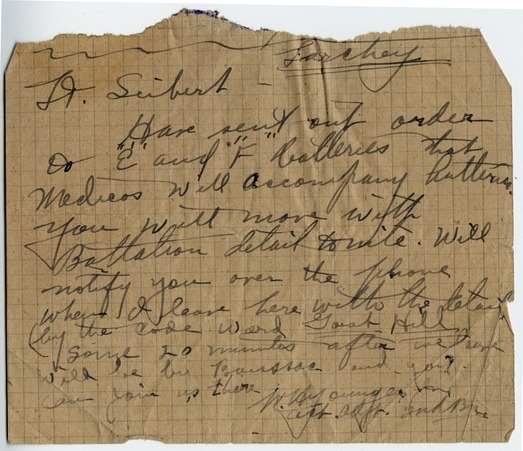 Garchey
Lt. Seibert -
Have sent out order
to "E" and "F" Batteries that
Medicos will accompany batteries.
You will move with
Battalion detail tonite. Will
notify you over the phone
when I leave here with the detail
(by the code word Goat Hill
Some 20 minutes after we
will be by and you
can join us there
W. Younger
2nd Bn